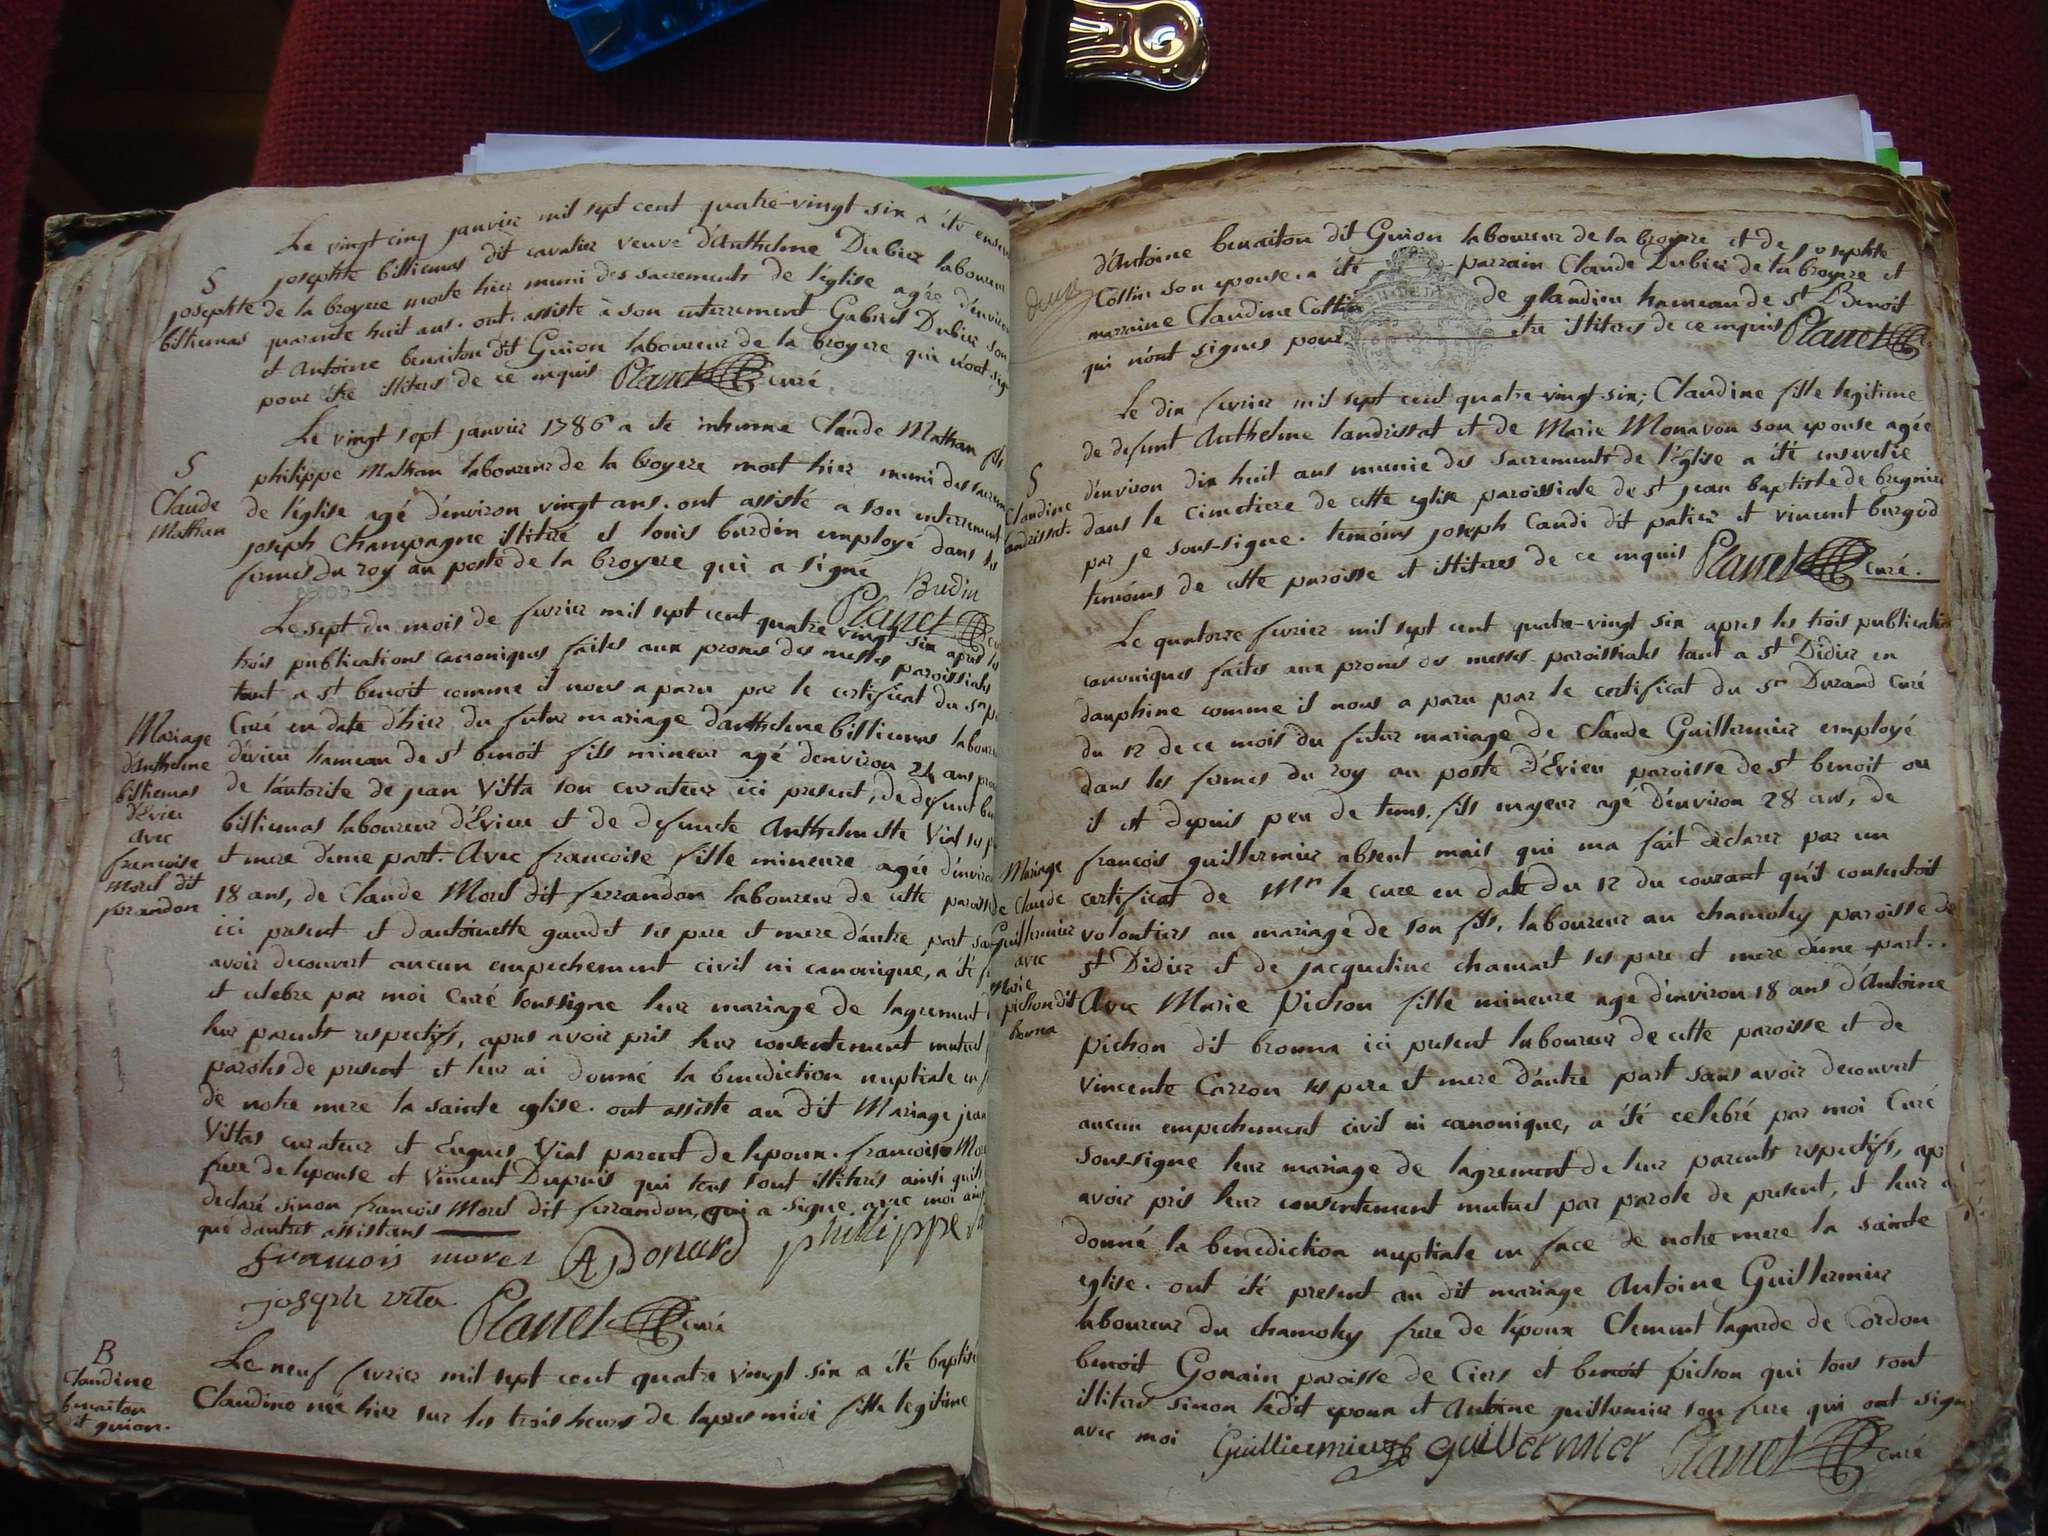 Le vingt cinq janvier mil sept cent quatre-vingt six a été
S
josephte billiemas dit cavalier veuve d'Anthelme Dubier laboureur
josephte
billiemas
de la broyere morte hier muni des sacrements de l'église agée d'environ
quarante huit ans. ont assisté à son enterrement Gabriel Dubier son
et Antoine benaiton dit Guion laboureur de la broyere qui n'ont
pour être illiterés de ce requis Planet curé
Le vingt sept janvier 1786 a été inhumé Claude Mathan
S
Claude
Mathan
philippe Mathan laboureur de la broyere mort hier muni des
de l'église agé d'environ vingt ans. ont assisté a son enterrement
joseph Champagne illiteré et louis burdin employé dans les
fermes du roy au poste de la broyere qui a signé Burdin
Planet
Le sept du mois de fevrier mil sept cent quatre vingt six apres les
trois publications canoniques faites aux prones des messes paroissiales
tant a st benoit comme il nous a paru par le certificat du sr
Mariage
d'Anthelme
billiemas
d'Evieu
avec
francoise
morel dit
ferandon
Curé en date d'hier du futur mariage d'anthelme billiemas
d'évieu hameau de st benoit fils mineur agé denviron 24 ans
de l'autorite de jean Vitta son curateur ici present, de defunt
billiemas laboureur d'Evieu et de defuncte Anthelmette Vial ses
et mere d'une part. Avec francoise fille mineure agée d'environ
18 ans, de Claude Morel dit ferrandon laboureur de cette paroisse
ici present et d'antoinette gaudet ses pere et mere d'autre part
avoir decouvert aucun empechement civil ni canonique, a été
et celebre par moi Curé soussigne leur mariage de lagrement
leur parents respectifs, apres avoir pris leur consentement mutuel
paroles de present et leur ai donné la benediction nuptiale
de notre mere la sainte eglise. ont assiste au dit Mariage jean
Vittas curateur et Eugues Vial parent de lepoux. francois
frere de lepouse et Vincent Dupuis qui tous sont illiterés ainsi
declaré sinon francois Morel dit ferrandon, qui a signe avec moi
que dautres assistans
francois morel A Donard philippe
joseph vita
Planet curé
B
Claudine
benaiton
dit guion.
Le neuf fevrier mil sept cent quatre vingt six a été baptisé
Claudine née hier sur les trois heures de lapres midi fille legitime
d'Antoine benaiton dit Guion laboureur de la broyere et de josephte
Collin son epouse. a été parrain Claude Dubier de la broyere et
marraine Claudine Collin de glandieu hameau de st Benoit
qui n'ont signes pour etre illiteres de ce requis Planet
Le dix fevrier mil sept cent quatre-vingt-six; Claudine fille legitime
de defunt Anthelme landrissat et de Marie Monavon son epouse agée
S
Claudine
landrissat.
d'environ dix huit ans munie des sacrements de l'église a été ensevelie
dans le cimetiere de cette eglise paroissiale de st jean baptiste de bregnier
par je sous-signe. temoins joseph Candi dit patier et vincent burgod
temoins de cette paroisse et illiteres de ce requis Planet curé.
Le quatorze fevrier mil sept cent quatre-vingt six apres les trois
canoniques faites aux prones des messes paroissiales tant a st Didier en
dauphine comme il nous a paru par le certificat du sr Durand Curé
du 12 de ce mois du futur mariage de Claude Guillermier employé
dans les fermes du roy au poste d'Evieu paroisse de st benoit ou
il est depuis peu de tems. fils majeur agé d'environ 28 ans, de
Mariage
de Claude
Guillermier
avec
Marie
pichon dit
francois guillermier absent mais qui ma fait declarer par un
certificat de Mr le cure en date du 12 du courant qu'il consentoit
volontiers au mariage de son fils, laboureur au chamoley paroisse de
st Didier et de jacqueline chamart ses pere et mere d'une part.
Avec Marie Pichon fille mineure agé d'environ 18 ans d'Antoine
pichon dit bronna ici present laboureur de cette paroisse et de
vincente Carron ses pere et mere d'autre part sans avoir decouvert
aucun empechement civil ni canonique, a été celebré par moi Curé
sous-signe leur mariage de lagrement de leur parents respectifs,
avoir pris leur consentement mutuel par parole de present, et leur
donné la benediction nuptiale en face de notre mere la sainte
eglise. ont été present au dit mariage Antoine Guillermier
laboureur du chamoley frere de l'epoux Clement lagarde de Cordon
benoit Gonain paroisse de Ciers et benoit pichon qui tous sont
illiteré sinon ledit epoux et Antoine guillermier son frere qui ont
avec moi Guilliermier guillermier Planet curé